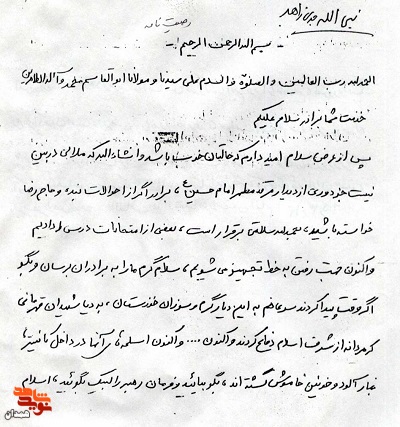 نبی الله قربان زاهد
وصیت نامه
بسم الله الرحمن الرحیم
الحمدلله رب العالمین والصلوة والسلام علی سیدنا و مولانا ابوالقاسم محمد و آله الطاهرین
خدمت شما برادر سلام علیکم
پس از عرض سلام امیدوارم که حالتان خوب باشد و انشاء الله که ملالی در بین
نیست جز دوری از دیدار مرقد مطهر امام حسین ع، برادر اگر از احوالات بنده و حاج رضا
خواسته باشید، بحمدلله سلامتی برقرار است، بعضی از امتحانات درسی را دادیم
و اکنون جهت رفتن به خط تجهیز می شویم، سلام گرم ما را به برادران برسان و بگو
اگر وقت پیدا کردند سری هم به این دیار گرم و سوزان خوزستان، به دیار شهیدان قهرمانی
که مردانه از شرف اسلام دفاع کردند و اکنون .... و اکنون اسلحه های آنها در داخل
غبار آلود و خونین خاموش گشته اند، بگو بیائید و فرمان رهبر را لبیک بگوئید، اسلام
نوید شاهد
همدان